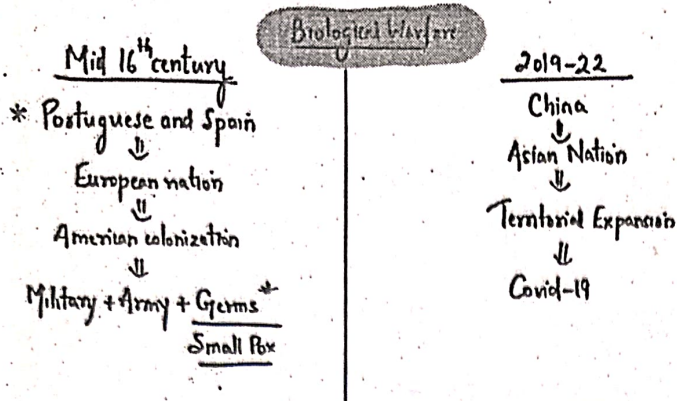 Biological Warfare
Mid 16th century
* Portuguese and Spain
⇓
European nation
⇓
American colonization
⇓
Military + Army + Germs*
Small Pox
2019-22
China
⇓
Asian Nation
⇓
Territorial Expansion
⇓
Covid-19